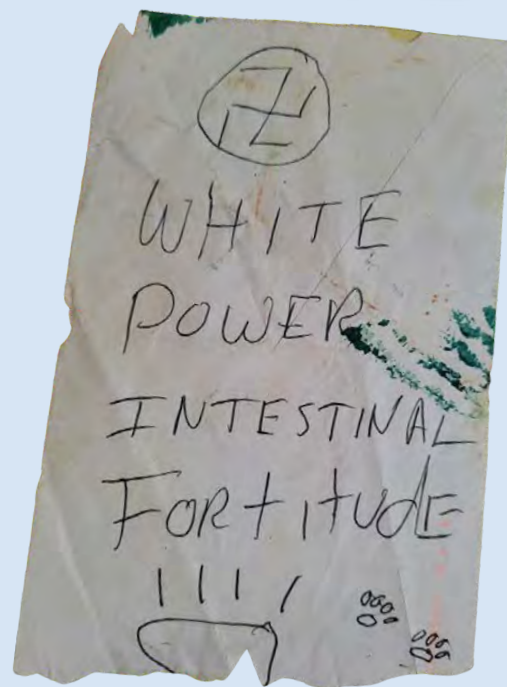 WHITE
POWER
INTESTINAL
FORTITUDE